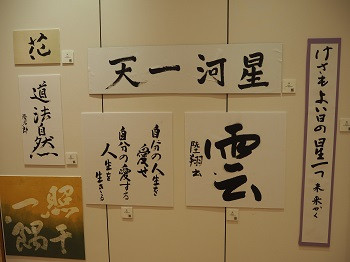 花
星河一天
道法自然
自分の人生を
愛せ
自分の愛する
人生を
生きろ
雲
陸翔書
けさもよい日の星一つ 未来かく
照千
一隅